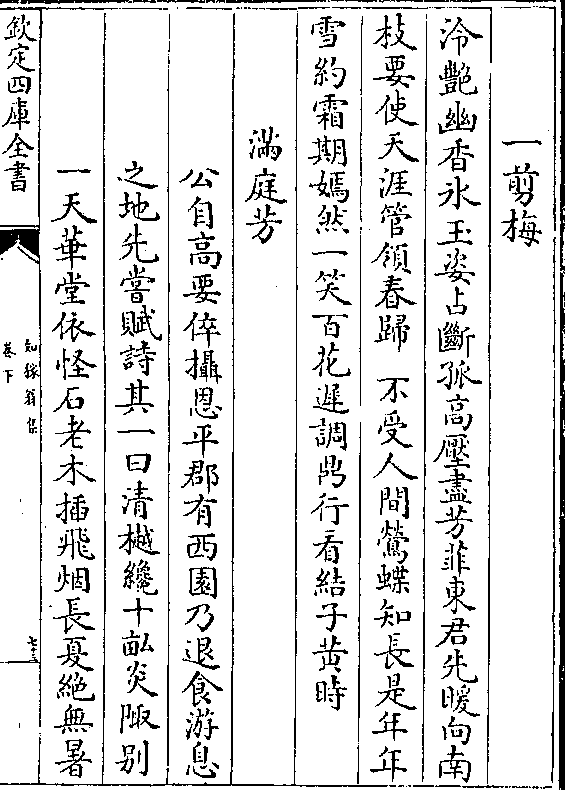 一剪梅
泠艷幽香氷玉姿占斷孤高壓盡芳菲東君先暖向南
枝要使天涯管領春歸　不受人間鶯蝶知長是年年
雪約霜期嫣然一笑百花遲調鼎行看結子黄時
滿庭芳
公自高要倅攝恩平郡有西園乃退食游息
之地先嘗賦詩其一曰清樾纔十畝炎陬别
一天華堂依怪石老木插飛烟長夏絶無暑
欽定四庫全書
知稼翁集
卷下